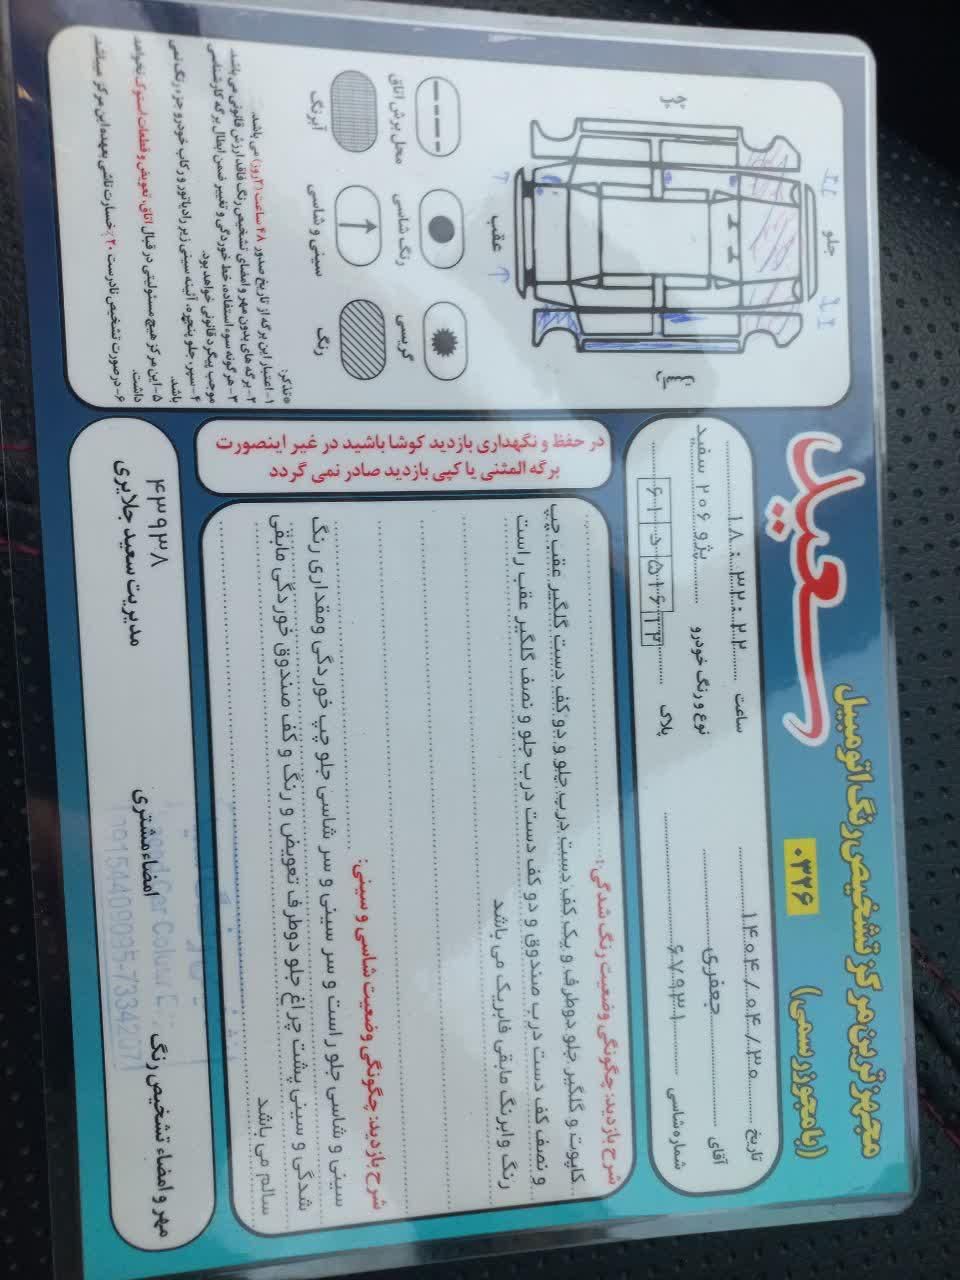 سعید
مجهزترین مرکز تشخیص رنگ اتومبیل
(با مجوز رسمی)
۰۳۲۶
تاریخ 1404/04/30
ساعت 18:32:22
آقای جعفری
نوع و رنگ خودرو پژو 206 سفید
شماره شاسی 67931
پلاک
جلو
عقب
محل برش اتاق
رنگ شاسی
گریسی
آبرنگ
سینی و شاسی
رنگ
*تذکر:
۱-اعتبار این برگه از تاریخ صدور ۴۸ ساعت (۲روز) می باشد.
۲-برگه های بدون مهر و امضای تشخیص رنگ فاقد ارزش قانونی می باشد
۳-هر گونه سوء استفاده، خط خوردگی و تغییر ضمن ابطال برگه کارشناسی
موجب پیگرد قانونی خواهد بود.
۴-سپر، جلو پنجره، آئینه سینی زیر رادیاتور و رکاب خودرو جزء رنگ نمی
باشد.
۵-این مرکز هیچ مسئولیتی در قبال اتاق، تعویض و قطعات استوک نخواهد
داشت.
۶-در صورت تشخیص نادرست ۲۰٪ خسارت ناشی بعهده این مرکز میباشد
در حفظ و نگهداری بازدید کوشا باشید در غیر اینصورت
برگه المثنی یا کپی بازدید صادر نمی گردد
شرح بازدید: چگونگی وضعیت رنگ شدگی:
کاپوت و گلگیر جلو دوطرف و یک کف دست درب جلو و دو کف دست گلگیر عقب چپ
و نصف کف دست درب صندوق و دو کف دست درب جلو و نصف گلگیر عقب راست
رنگ و ابرنگ مابقی فابریک می باشد
شرح بازدید: چگونگی وضعیت شاسی و سینی:
سینی و شاسی جلو راست و سر سینی و سر شاسی جلو چپ خوردگی ومقداری رنگ
شدگی و سینی پشت چراغ جلو دوطرف تعویض و رنگ و کف صندوق خوردگی مابقی
سالم می باشد
مهر و امضاء تشخیص رنگ
امضاء مشتری
۴۳۹۳۸
مدیریت سعید جلایری
09154409095-73342071